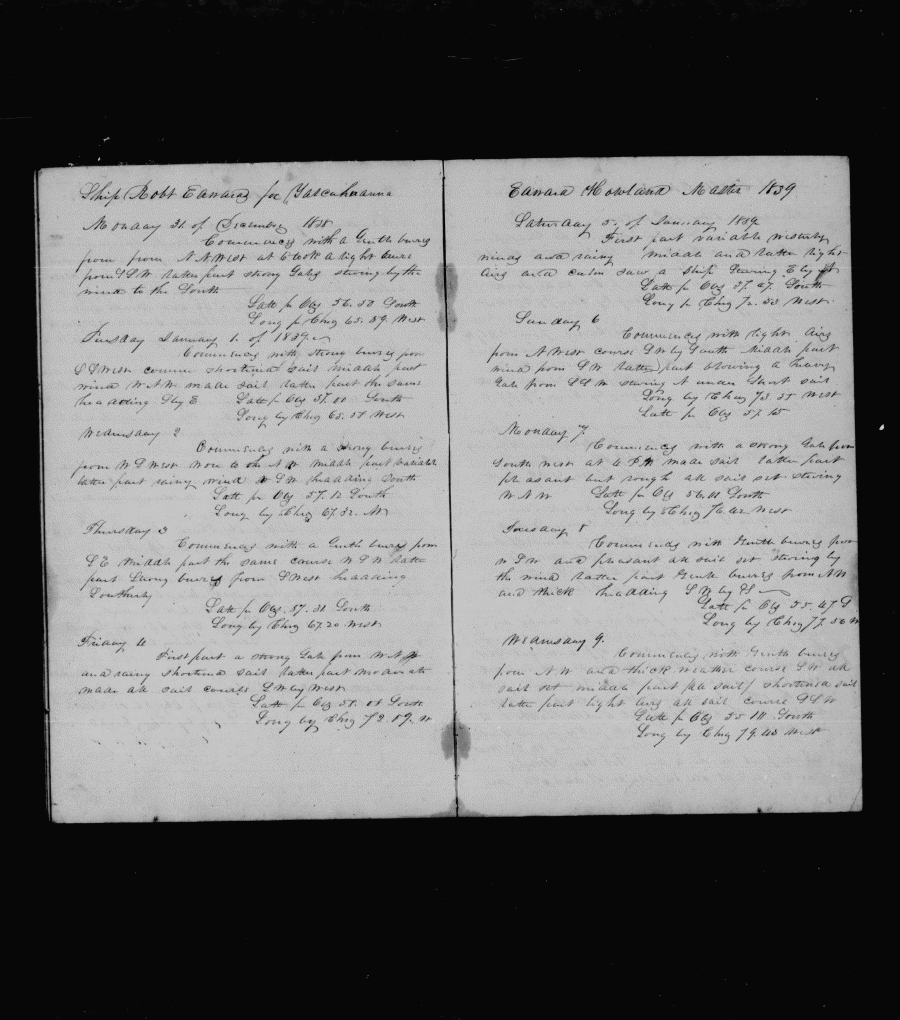 Ship Robt Edward for Talcahuanna
Monday 31 of December 1838
Commences with a Gentle breeze
from from NNWest at 6 took a light breeze
from SSW latter part strong Gales steering by the
wind to the South
Latt pr Obs 56.50 South
Long pr Chrg 65.59 West
Tuesday January 1. of 1839
Commences with strong breeze from
SSWest course shortened sail middle part
wind WNW made sail latter part the same
heading SbyE Latt pr Obs 57.00 South
Long by Chrg 65.58 West
Wednesday 2
Commences with a strong breeze
from WSWest more to the NW middle part variable
latter part rainy wind WSW heading South
Latt pr Obs 57.12 South
Long by Chrg 67.32 W
Thursday 3
Commences with a Gentle breeze from
SE middle part the same course WSW latter
part strong breeze from SWest heading
Southerly
Latt pr Obs 57.31 South
Long by Chrg 67.20 West
Friday 4
First part a strong Gale from WNW
and rainy shortened sail latter part moderate
made all sail course SWbyWest
Latt pr Obs 58.08 South
Long by Chrg 72.09 W
Edward Howland Master 1839
Saturday 5. of January 1839
First part variable westerly
winds and rainy middle and latter light
airs and calm saw a ship steering E by
Latt pr Obs 57.47 South
Long pr Chrg 72.53 West
Sunday 6
Commences with light airs
from NWest course SWbySouth middle part
wind from SW latter part blowing a heavy
Gale from SSW steering W under short sail
Long by Chrg 73.55 West
Latt pr Obs 57.45
Monday 7
Commences with a strong Gale from
South West at 6 PM made sail latter part
pleasant but rough all sail set steering
WNW Latt pr Obs 56.01 South
Long by Chrg 76.42 West
Tuesday 8
Commences with Gentle breeze from
WSW and pleasant all sail set steering by
the wind latter part Gentle breeze from NW
and thick heading SWbyS
Latt pr Obs 55.47 S
Long by Chrg 77.56 W
Wednesday 9.
Commences with Gentle breeze
from NW and thick weather course SW all
sail set middle part shortened sail
latter part light breeze all sail course SSW
Latt pr Obs 55.18 South
Long by Chrg 79.43 West